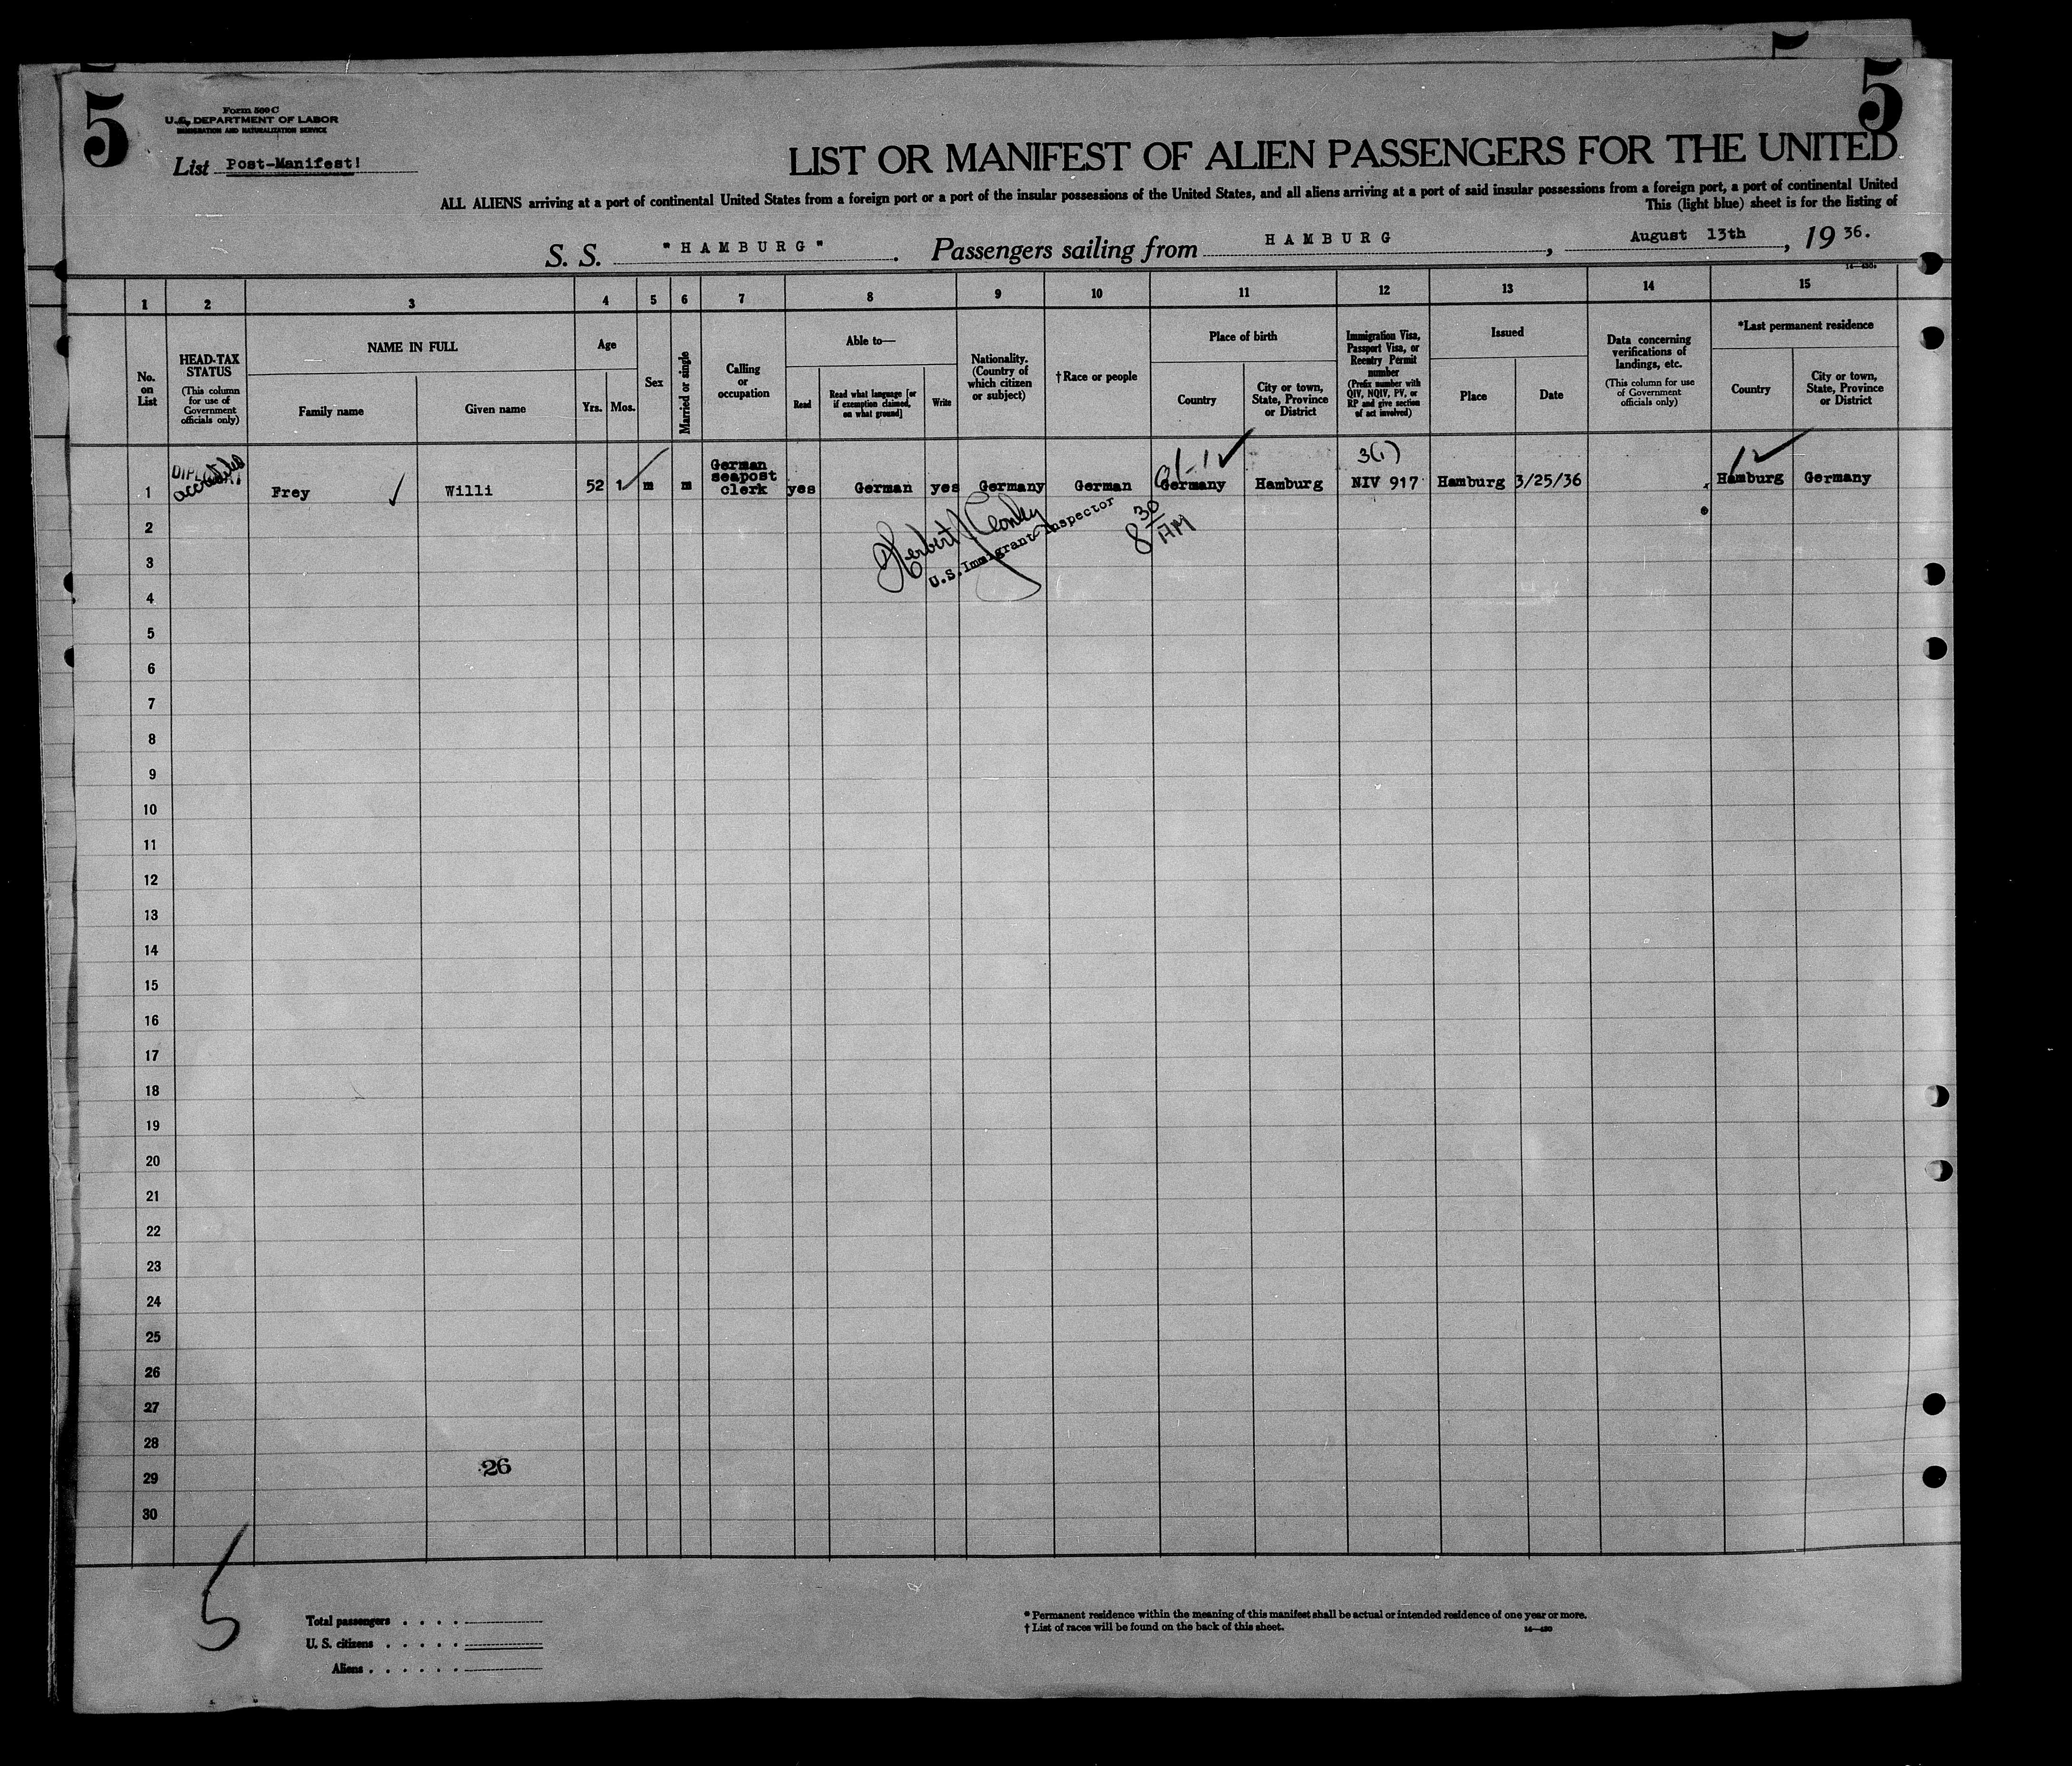 5
5
5
Form 500 C
U.S. DEPARTMENT OF LABOR
IMMIGRATION AND NATURALIZATION SERVICE
List Post-Manifest!
LIST OR MANIFEST OF ALIEN PASSENGERS FOR THE UNITED
ALL ALIENS arriving at a port of continental United States from a foreign port or a port of the insular possessions of the United States, and all aliens arriving at a port of said insular possessions from a foreign port, a port of continental United
This (light blue) sheet is for the listing of
S. S. "HAMBURG". Passengers sailing from HAMBURG, August 13th, 1936.
1 2 3 4 5 6 7 8 9 10 11 12 13 14 15
No. on List
HEAD-TAX STATUS
(This column for use of Government officials only)
NAME IN FULL
Family name
Given name
Age
Yrs.
Mos.
Sex
Married or single
Calling or occupation
Able to—
Read
Read what language [or if exemption claimed, on what ground]
Write
Nationality. (Country of which citizen or subject)
† Race or people
Place of birth
Country
City or town, State, Province or District
Immigration Visa, Passport Visa, or Reentry Permit number
(Prefix number with QIV, NQIV, PV, or RP and give section of act involved)
Issued
Place
Date
Data concerning verifications of landings, etc.
(This column for use of Government officials only)
*Last permanent residence
Country
City or town, State, Province or District
3(1)
1 Frey Willi 52 1 m m German seapost clerk yes German yes Germany German Germany Hamburg NIV 917 Hamburg 3/25/36 Hamburg Germany
Herbert
U.S. Immigrant Inspector
8 30 AM
2
3
4
5
6
7
8
9
10
11
12
13
14
15
16
17
18
19
20
21
22
23
24
25
26
27
28
26
29
30
5
Total passengers
U. S. citizens
Aliens
* Permanent residence within the meaning of this manifest shall be actual or intended residence of one year or more.
† List of races will be found on the back of this sheet.